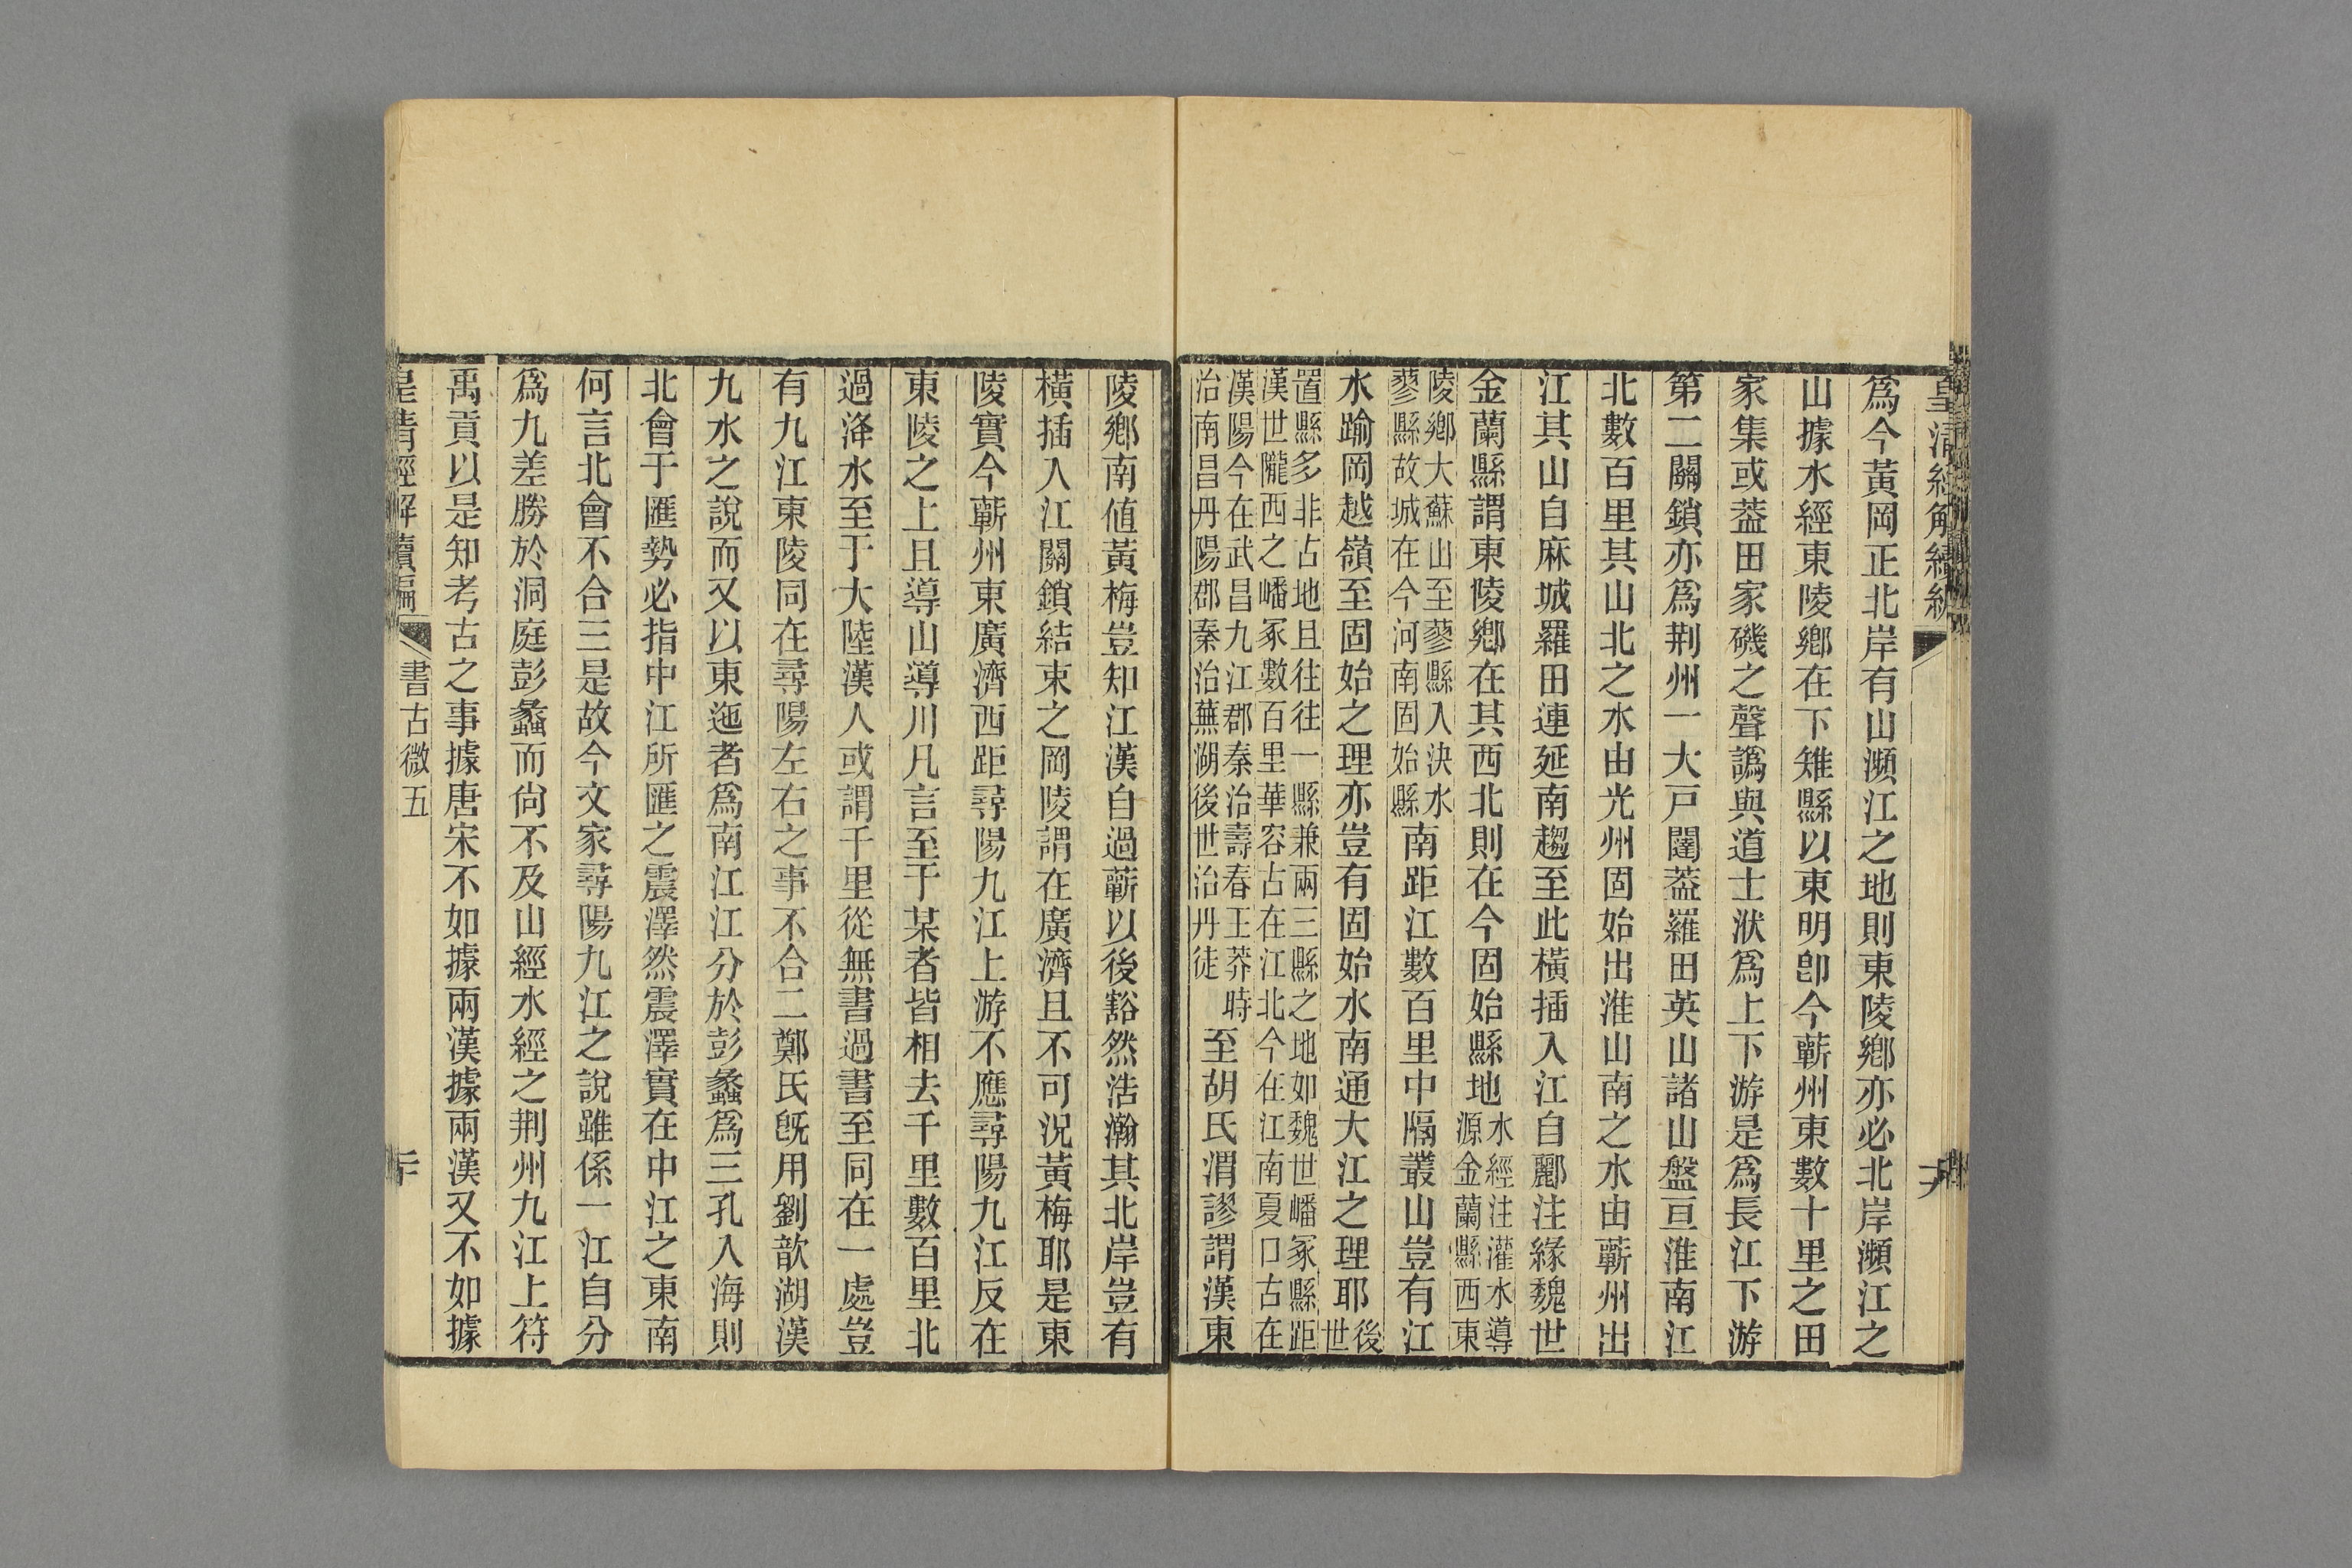 皇清經解續編
為今黃岡正北岸有山瀕江之地則東陵鄉亦必北岸瀕江之
山據水經東陵鄉在下雉縣以東明卽今蘄州東數十里之田
家集或葢田家磯之聲譌與道士洑為上下游是為長江下游
第二關鎖亦為荆州一大戸闥葢羅田英山諸山盤亘淮南江
北數百里其山北之水由光州固始出淮山南之水由蘄州出
江其山自麻城羅田連延南趨至此橫插入江自酈注緣魏世
金蘭縣謂東陵鄉在其西北則在今固始縣地水經注灌水導源金蘭縣西東
陵鄉大蘇山至蓼縣入決水蓼縣故城在今河南固始縣南距江數百里中隔叢山豈有江
水踰岡越嶺至固始之理亦豈有固始水南通大江之理耶後世
置縣多非占地且往往一縣兼兩三縣之地如魏世嶓冢縣距漢世隴西之嶓冢數百里華容古在江北今在江南夏口古在
漢陽今在武昌九江郡秦治壽春王莽時治南昌丹陽郡秦治蕪湖後世治丹徒至胡氏渭謬謂漢東
陵鄉南値黃梅豈知江漢自過蘄以後豁然浩瀚其北岸豈有
橫插入江關鎖結束之岡陵謂在廣濟且不可況黃梅耶是東
陵實今蘄州東廣濟西距尋陽九江上游不應尋陽九江反在
東陵之上且導山導川凡言至于某者皆相去千里數百里北
過洚水至于大陸漢人或謂千里從無書過書至同在一處豈
有九江東陵同在尋陽左右之事不合二鄭氏旣用劉歆湖漢
九水之說而又以東迤者為南江江分於彭蠡為三孔入海則
北會于匯勢必指中江所匯之震澤然震澤實在中江之東南
何言北會不合三是故今文家尋陽九江之說雖係一江自分
為九差勝於洞庭彭蠡而尙不及山經水經之荆州九江上符
禹貢以是知考古之事據唐宋不如據兩漢據兩漢又不如據
皇清經解續編 書古微五